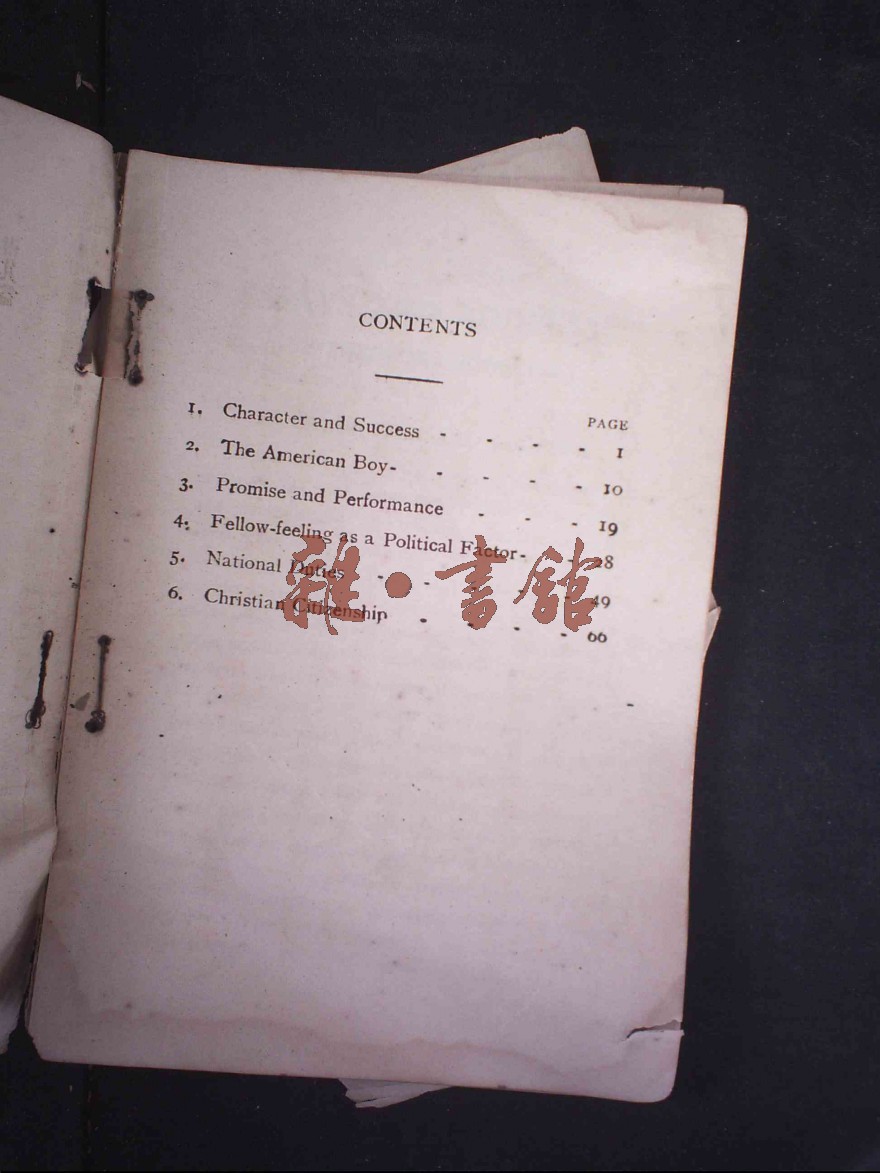 CONTENTS
PAGE
1. Character and Success - - - - 1
2. The American Boy- - - - - 10
3. Promise and Performance - - - 19
4. Fellow-feeling as a Political Factor- - 28
5. National Duties - - - - - 49
6. Christian Citizenship - - - - 66
雜·書館